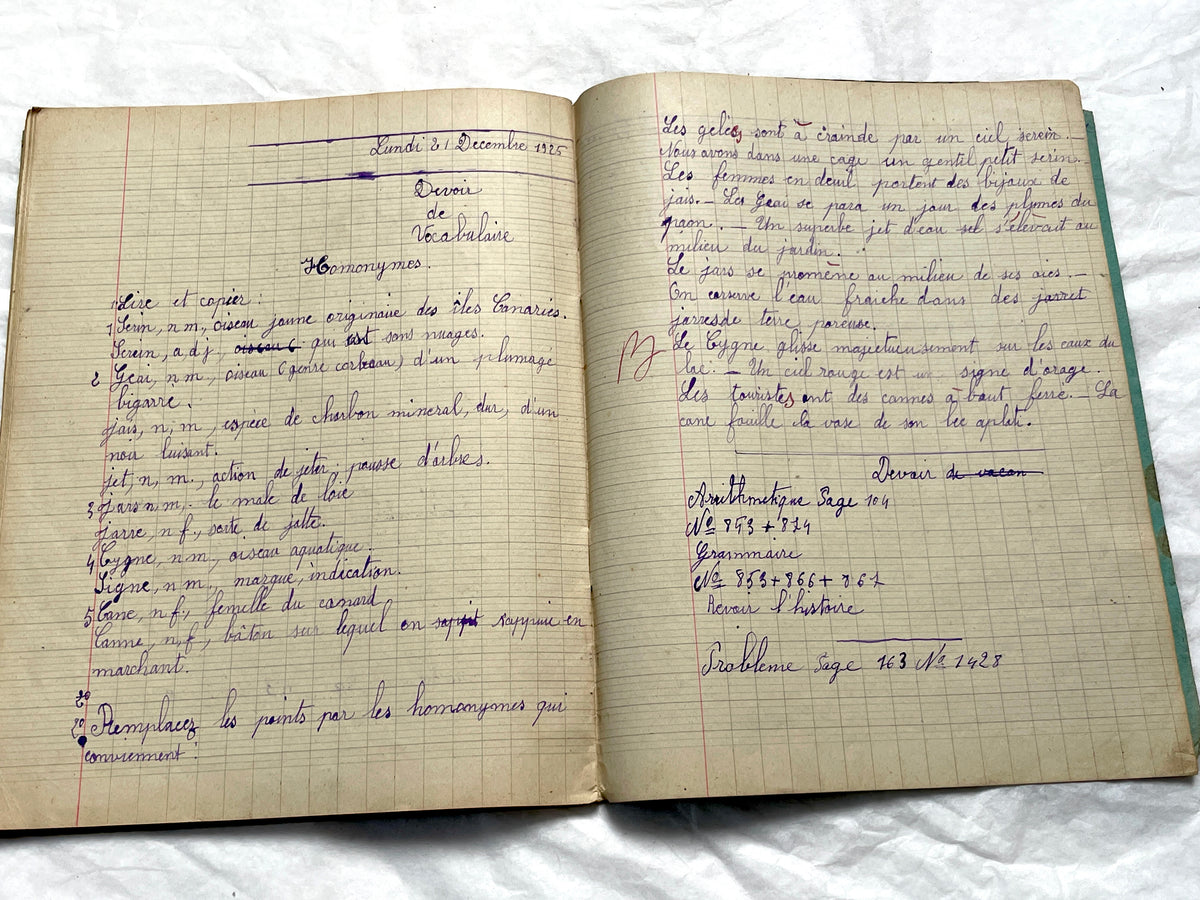 Lundi 21 Decembre 1925
Devoir
de
Vocabulaire
Homonymes.
1 Lire et copier :
1 Serin, n m., oiseau jaune originaire des îles Canaries.
Serein, adj, oiseau ( qui est sans nuages.
2 Geai, n m., oiseau (genre corbeau) d'un plumage
bigarré.
jais, n, m, espèce de charbon mineral, dur, d'un
noir luisant.
jet, n, m., action de jeter, pousse d'arbres.
3 jars n, m,. le male de l'oie
jarre, n f., sorte de jatte.
4 Cygne, n m., oiseau aquatique.
Signe, n m., marque, indication.
5 Cane, n f., femelle du canard
Canne, n, f., bâton sur lequel on s'appuie en
marchant.
2º
2º Remplacez les points par les homonymes qui
conviennent :
Les gelées sont à crainde par un ciel serein.
Nous avons dans une cage un gentil petit serin.
Les femmes en deuil portent des bijoux de
jais. — Les Geai se para un jour des plumes du
paon. — Un superbe jet d'eau sel s'élevait au
milieu du jardin.
Le jars se promène au milieu de ses oies. —
On conserve l'eau fraiche dans des jarret
jarres de terre poreuse.
B
Le Cygne glisse majectueusement sur les eaux du
lac. — Un ciel rouge est un signe d'orage.
Les touristes ont des cannes à bout ferré. — La
cane fouille la vase de son bec aplati.
Devoir de vacan
Arithmetique Page 104
Nº 853 + 874
Grammaire
Nº 853 + 866 + 867
Revoir l'histoire
Probleme Page 163 Nº 1428